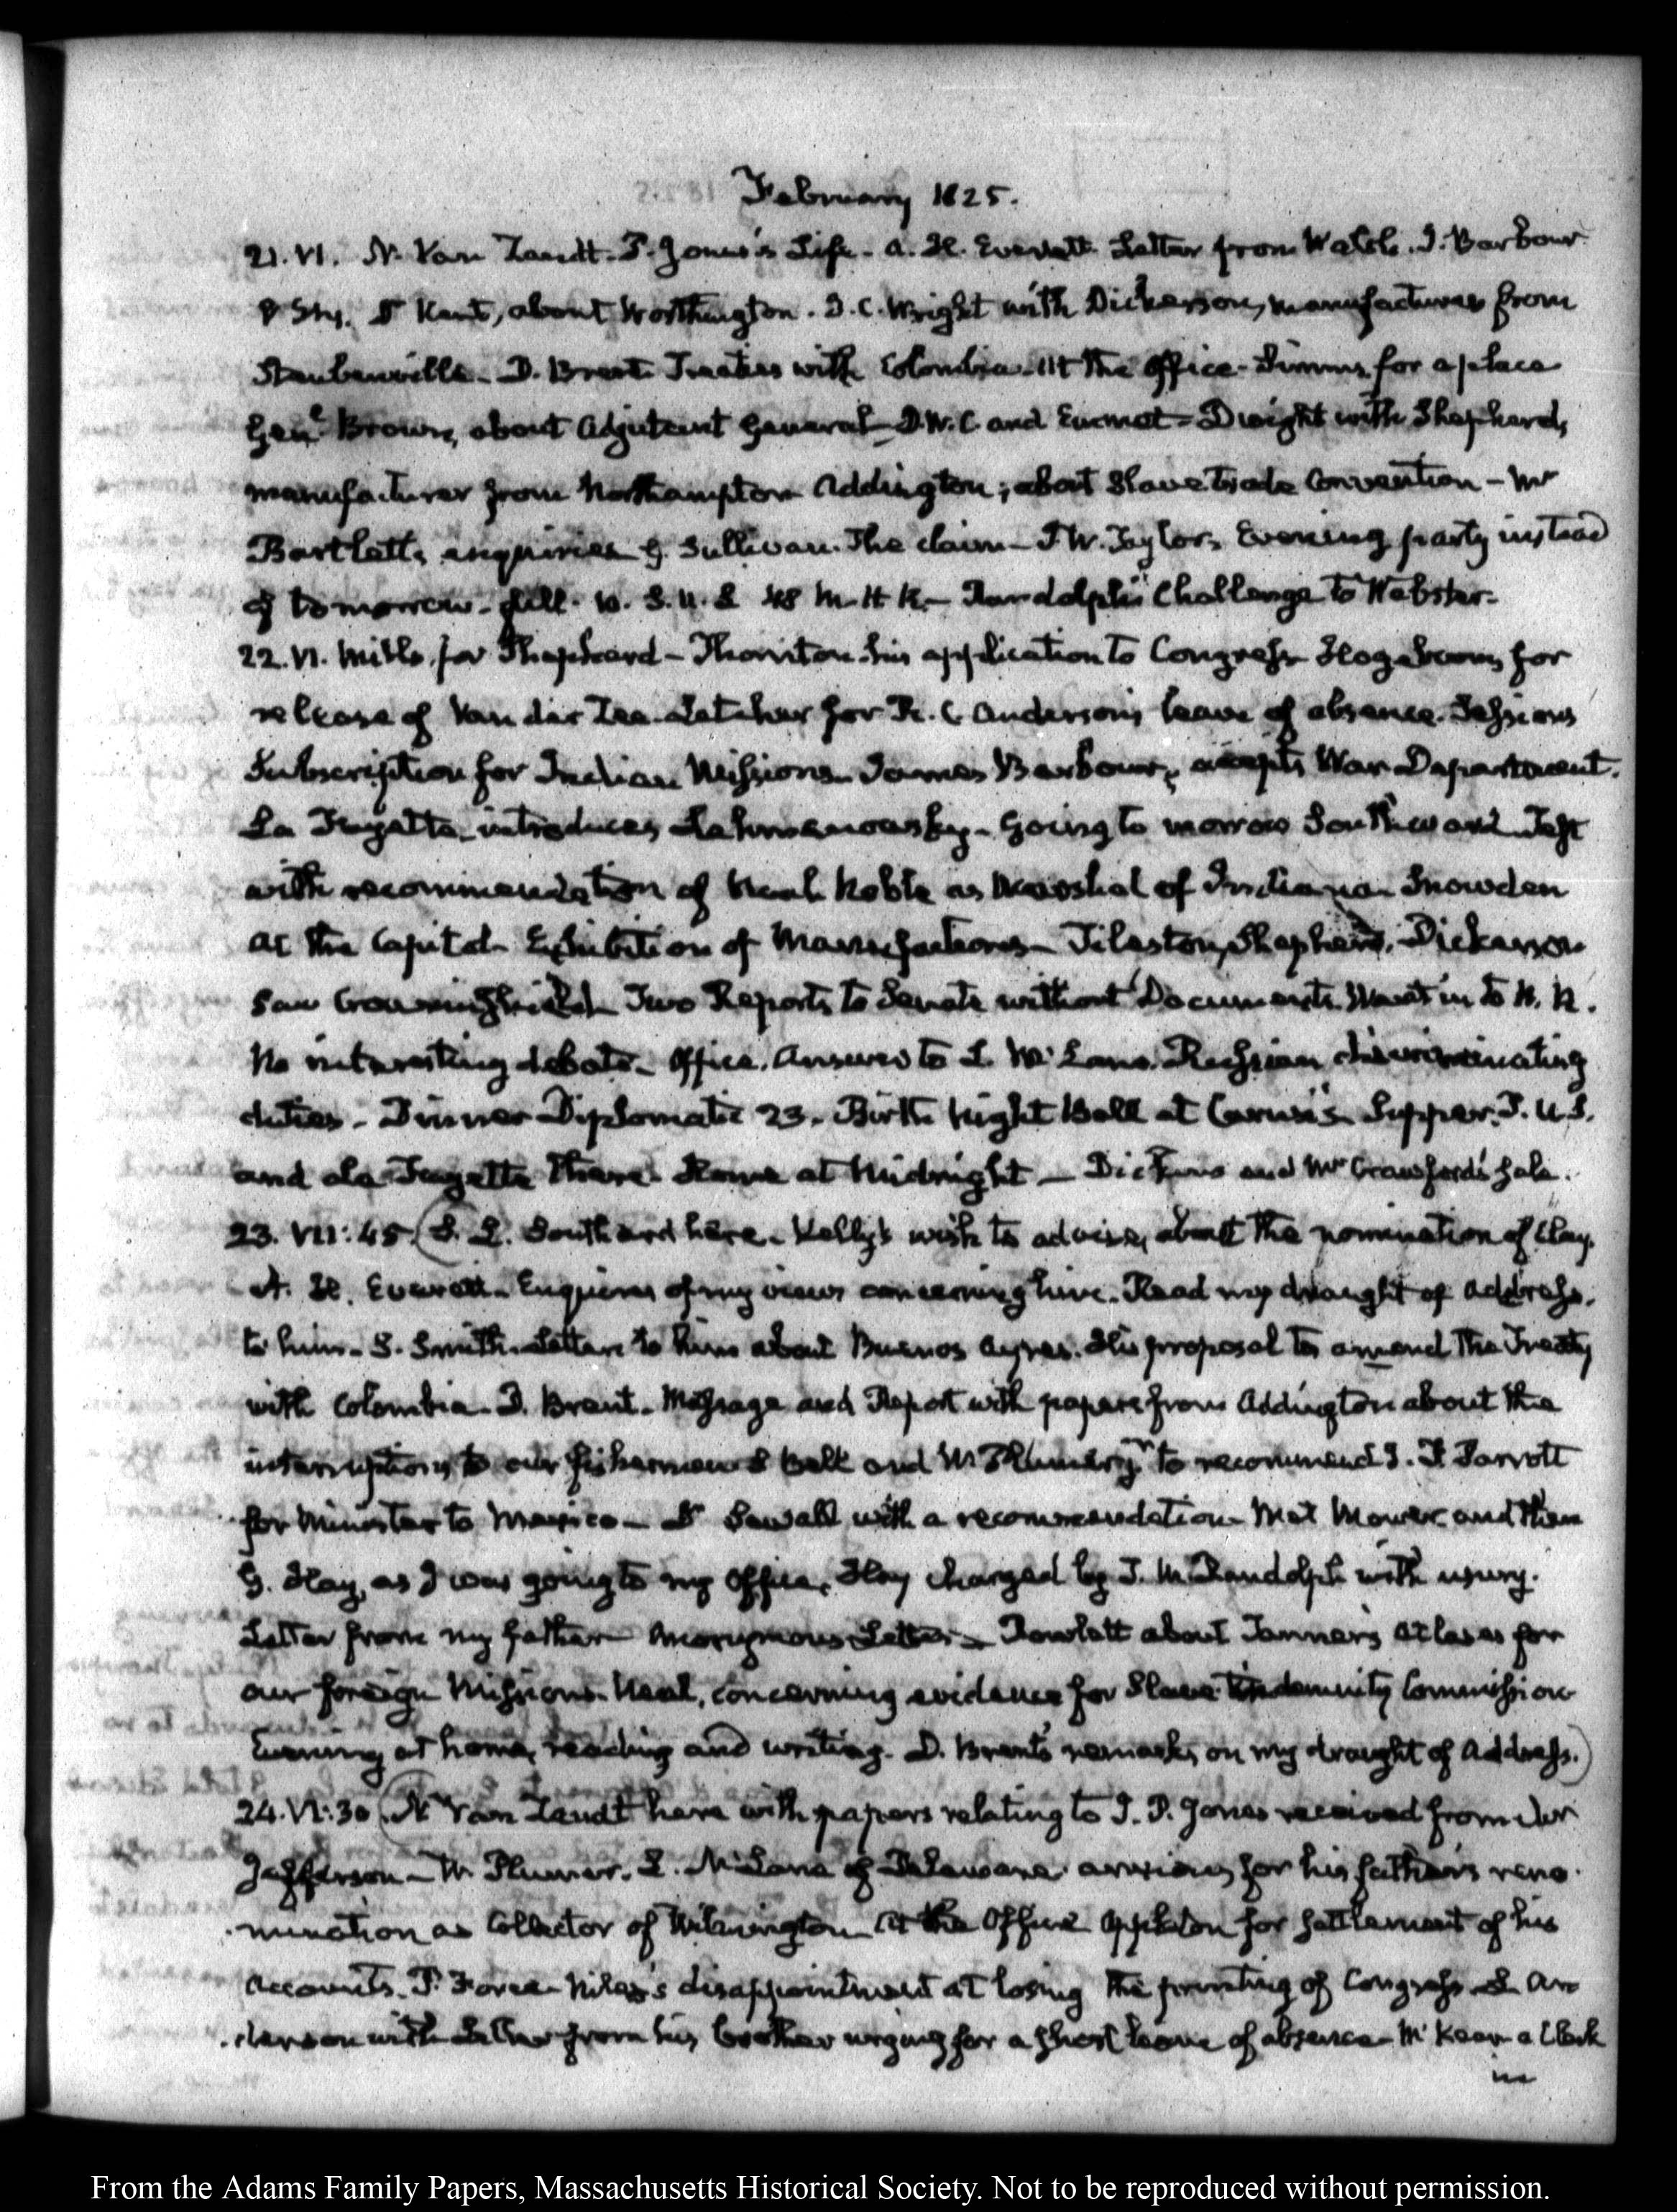 February 1825.
21. VI. N. Van Zandt. P. Jones's Life – A. H. Everett. Letter from Walsh. J. Barbour
Kent, about Worthington. J. C. Wright with Dickerson, manufacturer from
Steubenville – D. Brent. Treaties with Colombia – At the Office – Simms, for a place
Genl. Brown, about Adjutant General – D.W.C. and Emmet – Dwight with Shepherd,
manufacturer from Northampton Addington; about Slave trade Convention – Mr
Bartlett, enquiries G. Sullivan. The claim – J W. Taylor, Evening party instead
of tomorrow – 48 M. H R. – Randolph's Challenge to Webster.
22. VI. Mills, for Shepheard – Thornton his application to Congress Hogeboom, for
release of Van der Zee. Letcher for R. C. Anderson's leave of absence. Sessions
Subscription for Indian Missions. James Barbour, accepts War Department.
La Fayette, introduces – going to morrow Southward Test
with recommendation of Noah Noble as Marshal of Indiana. Snowden
At the Capitol – Exhibition of Manufactures – Tileston, Shepherd, Dickerson
Saw Crowninshield Two Reports to Senate without Documents. Went in to H. R.
No interesting debate – Office. Answer to L. McLane. Russian discriminating
duties – Dinner Diplomatic 23 – Birth Night Ball at Carusi's Supper. P. U.S.
and La Fayette there. Home at Midnight – Dickins and Mr Crawford's sale.
23. VII: 45. (S. L. Southard here – Kelly's wish to advise, about the nomination of Clay.
A. H. Everett – Enquires of my views concerning him. Read my draught of Address,
to him – S. Smith. Letter to him about Buenos Ayres. His proposal to amend the Treaty
with Colombia – D. Brent – Message and Report with papers from Addington about the
interruptions to our fishermen S Bell and W. Plumer jr to recommend J. F Parrott
for Minister to Mexico – Dr Sewall with a recommendation – Met Mower and then
G. Hay, as I was going to my Office, Hay charged by T. M Randolph with usury.
Letter from my father – Anonymous Letter – Rowlett about Tanner's Atlases for
our foreign Missions. Neal, concerning evidence for Slave Indemnity Commission
Evening at home, reading and writing. D. Brent's remarks, on my draught of Address.)
24. VI: 30 (N Van Zandt here with papers relating to J. P. Jones received from Mr
Jefferson – W. Plumer. L. McLane of Delaware anxious for his father's reno-
mination as Collector of Wilmington – At the Office Appleton for settlement of his
Accounts. P. Force – Niles's disappointment at losing the printing of Congress – An
derson with Letter from his brother urging for a short leave of absence – McKean a Clerk
in
From the Adams Family Papers, Massachusetts Historical Society. Not to be reproduced without permission.